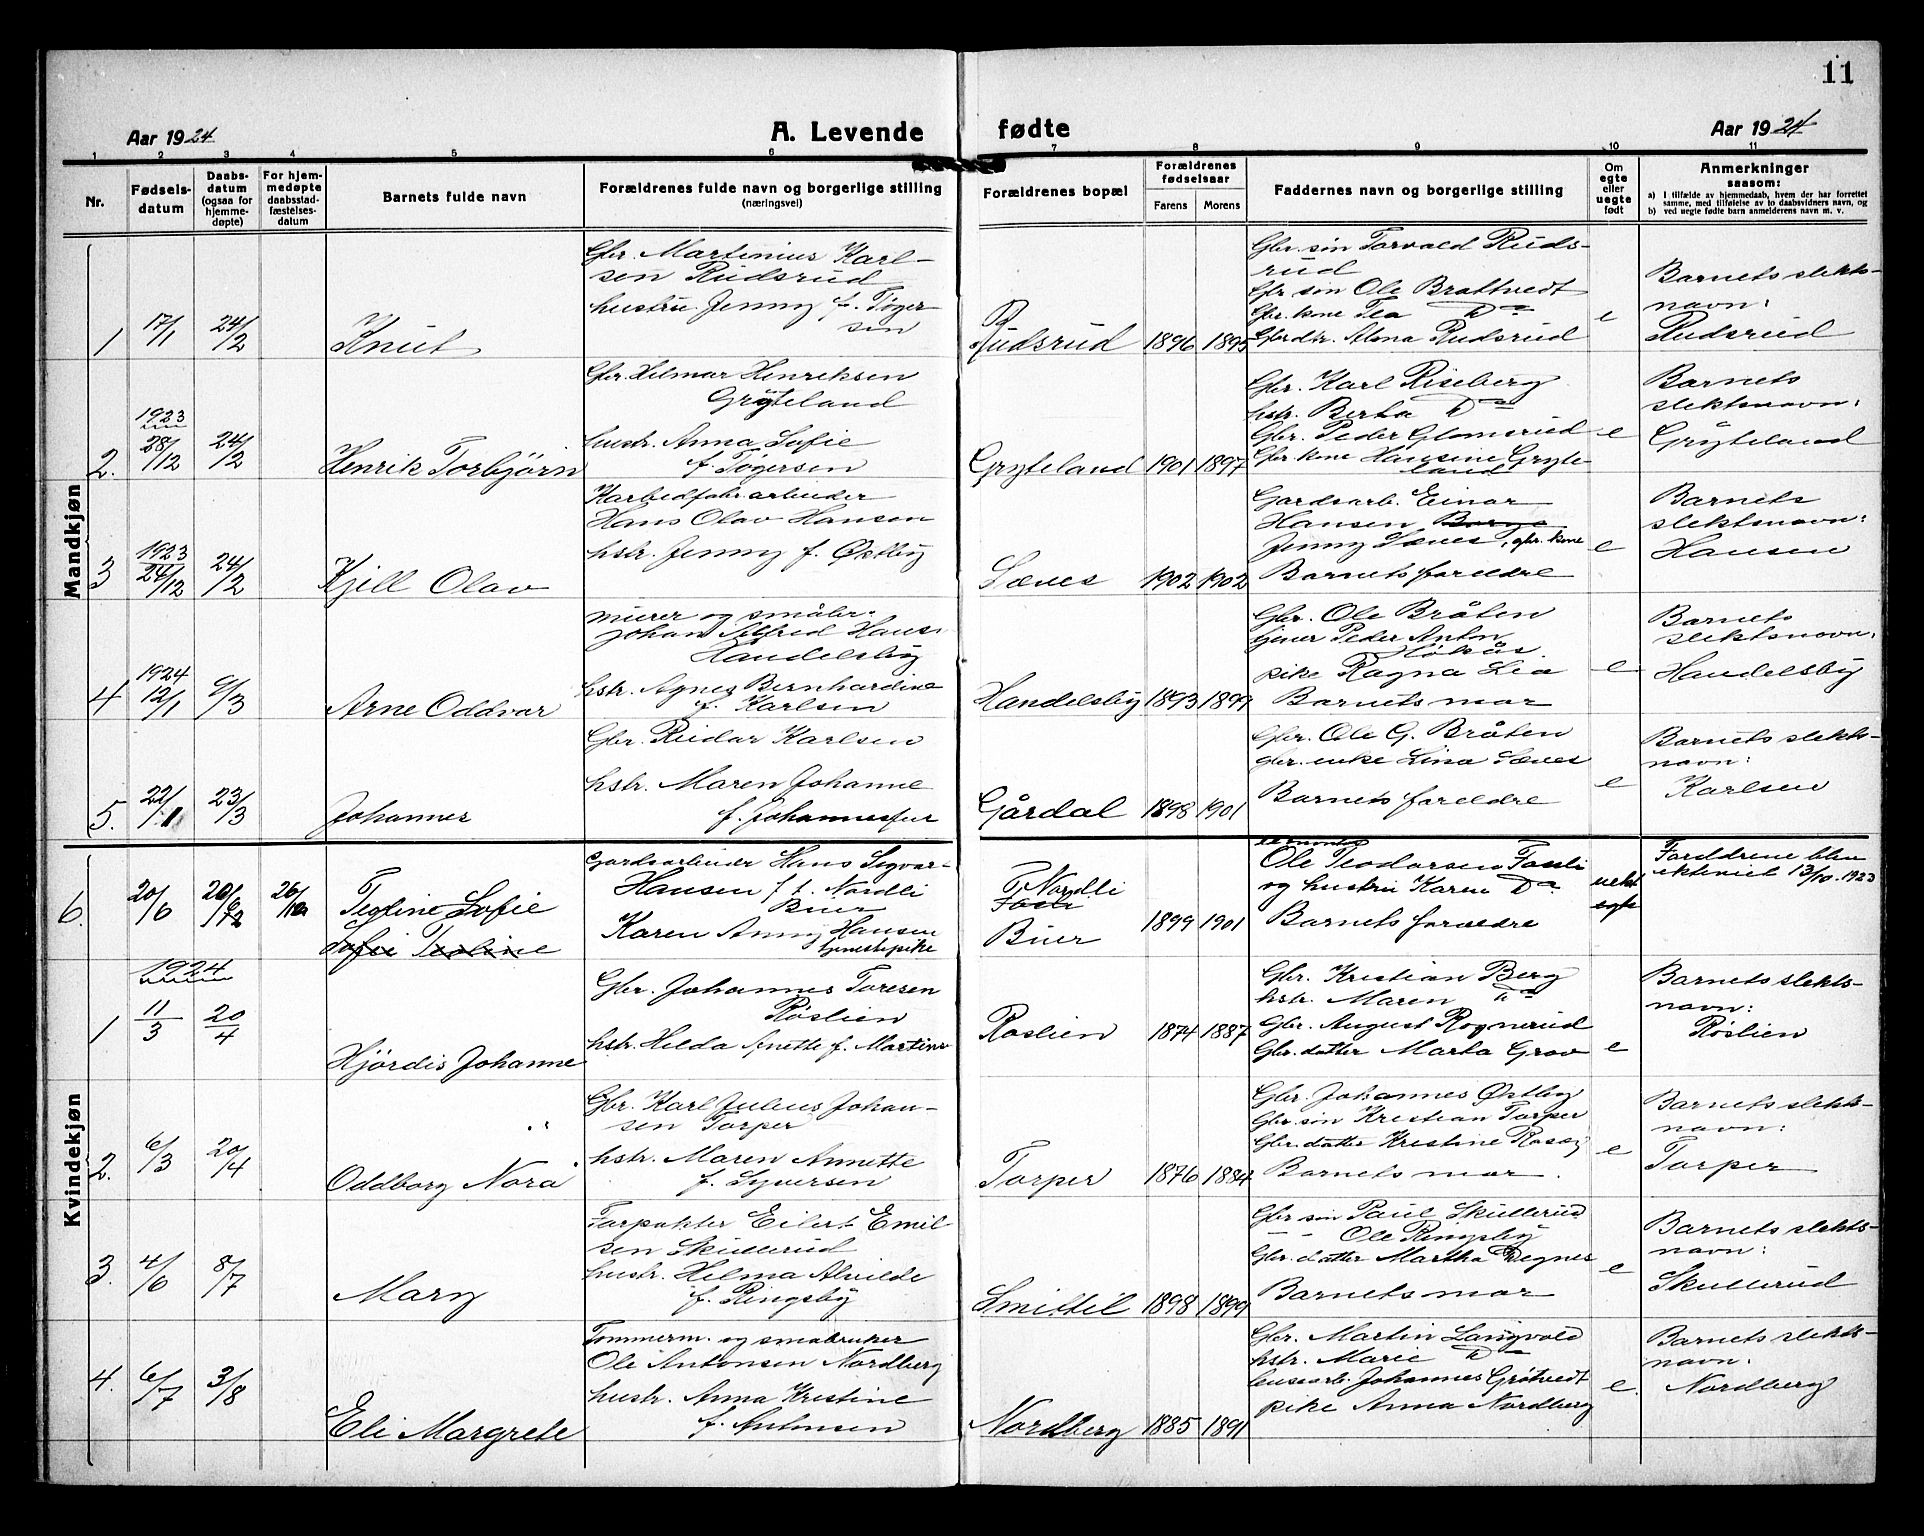 11
Aar 1924
A. Levende fødte
Aar 1924
1 2 3 4 5 6 7 8 9 10 11
Nr.
Fødsels-
datum
Daabs-
datum
(ogsaa for
hjemme-
døpte)
For hjem-
medøpte
daabsstad-
fæstelses-
datum
Barnets fulde navn
Forældrenes fulde navn og borgerlige stilling
(næringsvei)
Forældrenes bopæl
Forældrenes
fødselsaar
Farens
Morens
Faddernes navn og borgerlige stilling
Om
egte
eller
uegte
født
Anmerkninger
saasom:
a) I tilfælde av hjemmedaab, hvem der har forrettet
samme, med tilføielse av to daabsvidners navn, og
b) ved uegte fødte barn anmelderens navn m. v.
Mandkjøn
1
17/1
24/2
Knut
Gbr. Martinius Karl-
sen Rudsrud
hustru Jenny f. Tøger
sen
Rudsrud
1896
1895
Gbr. søn Torvald Ruds-
rud
Gbr søn Ole Brattvedt
Gbr. kone Tea Do
Gbr dtr. Alma Rudsrud
e
Barnets slekts-
navn:
Rudsrud
2.
1923
28/12
24/2
Henrik Torbjørn
Gbr. Hilmar Henriksen
Gryteland
hustr. Anna Sofie
f. Tøgersen
Gryteland
1901
1897
Gbr. Karl Riseberg
hstr. Berta Do
Gbr. Peder Glomsrud
Gbr. kone Hansine Gryte
land
e
Barnets
slektsnavn:
Gryteland
3
1923
24/12
24/2
Kjell Olav
Karbidfabr. arbeider
Hans Olav Hansen
hstr. Jenny f. Østby
Sæves
1902
1902
Gardsarb. Einar
Hansen
Jenny Sæves, gbr. kone
Barnets foreldre
e
Barnets
slektsnavn:
Hansen
4
1924
12/1
9/3
Arne Oddvar
murer og småbr.
Johan Alfred Hans.
Handelsby
hstr. Agnes Bernhardine
f. Karlsen
Handelsby
1893
1899
Gbr. Ole Bråten
tjener Peder Anton
Høkås.
pike Ragna Lia
Barnets mor
e
Barnets
slektsnavn:
Handelsby
5.
22/1
23/3
Johannes
Gbr. Reidar Karlsen
hstr. Maren Johanne
f. Johannessen
Gårdal
1898
1901
Gbr. Ole G. Bråten
gbr. enke Lina Sæves
Barnets foreldre
e
Barnets slekts-
navn:
Karlsen
6.
20/6
26/12
Teoline Sofie
Sofie Teoline
Gardsarbeider Hans Sigvar-
Hansen f. t. Nordli
Buer
Karen Anny Hansen
tjenestepike
Nordli
Buer
1899
1901
Ole Teodorsen Fossli
og hustru Karen Do
Barnets foreldre
uekt
Foreldrene blev
ekteviet 13/10. 1923
Kvindekjøn
1924
1
11/3
20/4
Hjördis Johanne
Gbr. Johannes Toresen
Røslien
hstr. Hilda Anette f. Martins
Røslien
1874
1887
Gbr. Kristian Berg
hstr. Maren Do
Gbr. August Rognerud
Gbr. datter Marta Grav
e
Barnets slekts-
navn:
Røslien
2.
6/3
20/4
Oddborg Nora
Gbr. Karl Julius Johan-
sen Torper
hstr. Maren Annette
f. Syversen
Torper
1876
1884
Gbr. Johannes Østby
Gbr søn Kristian Torper
Gbr. datter Kristine
Barnets mor.
e
Barnets slekts-
navn:
Torper
3.
4/6
8/7
Mary
Forpakter Eilert Emil
sen Skullerud
hustr. Hilma Alvilde
f. Ringsby
Smittil
1898
1899
Gbr søn Paul Skullerud
- - Ole Ringsby
Gbr. datter Martha Degnes
Barnets mor
e
Barnets slekts-
navn:
Skullerud
4.
6/7
3/8
Eli Margrete
Tømmerm. og småbruker
Ole Antonsen Nordberg
hustr. Anna Kristine
f. Antonsen
Nordberg
1885
1891
Gbr. Martin Langvold
hstr. Marie Do
Johannes Grøtvedt
pike Anna Nordberg
e.
Barnets slekts-
navn:
Nordberg